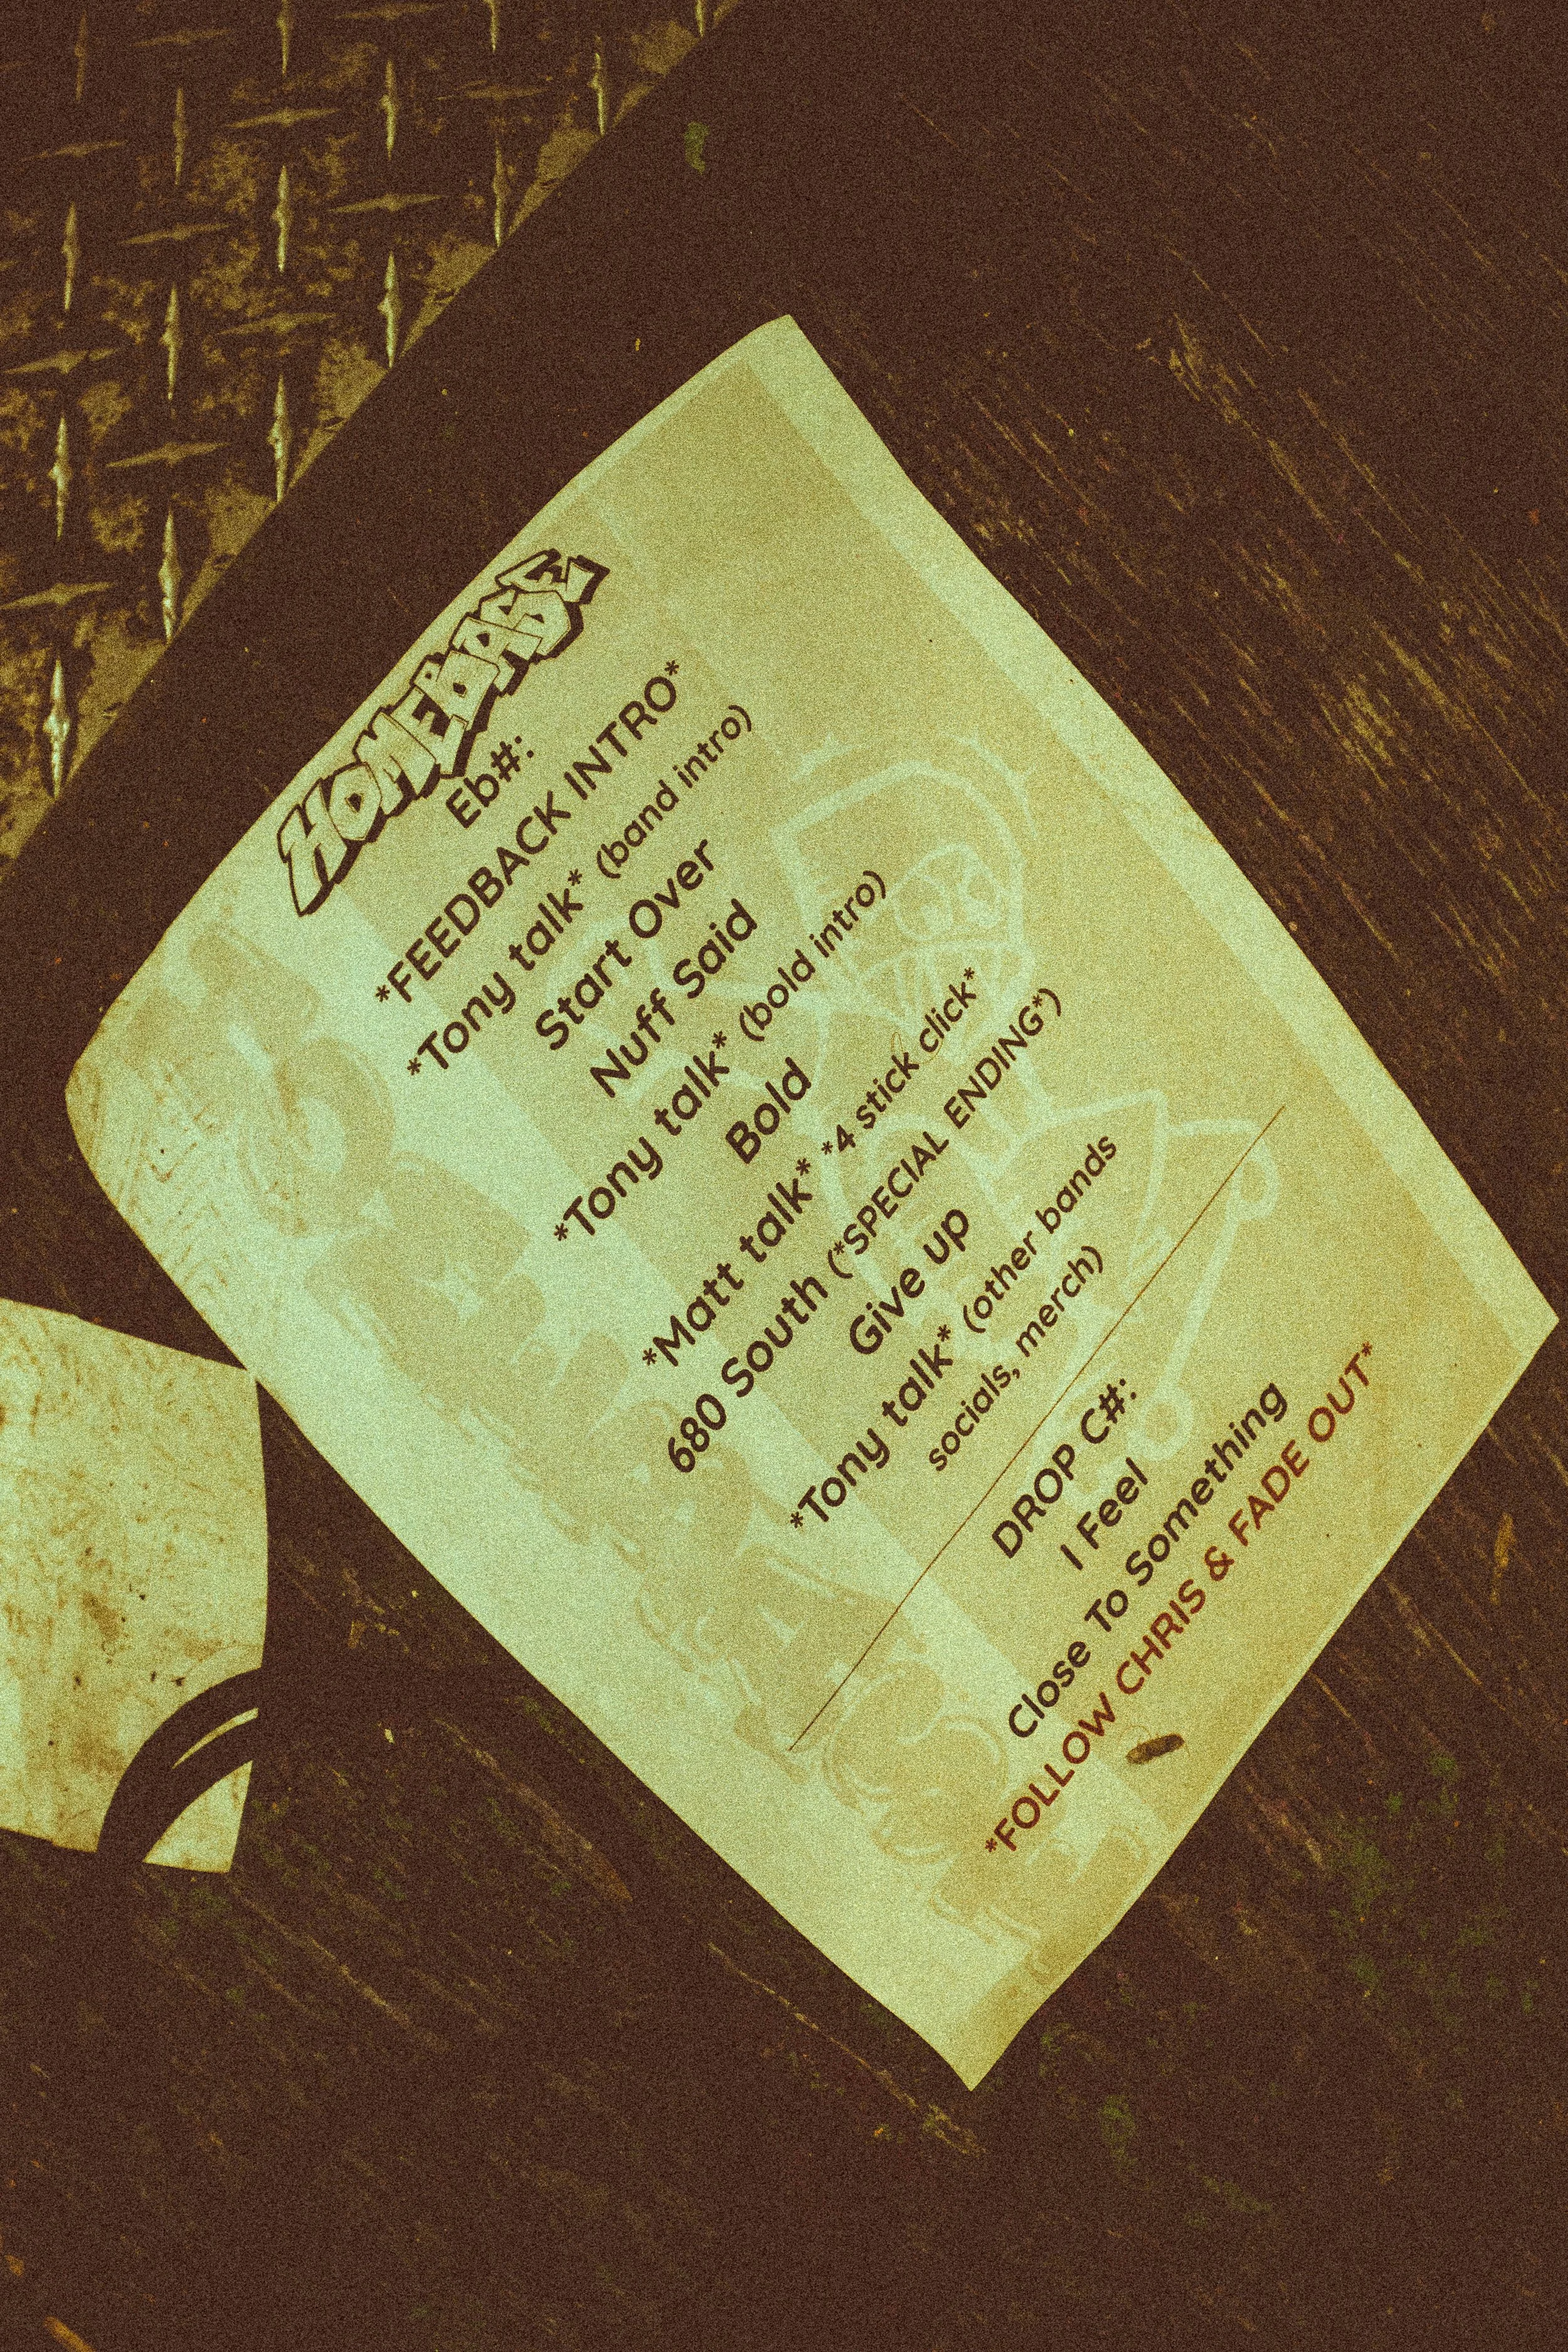 HOMEBASE
Eb#:
*FEEDBACK INTRO*
*Tony talk* (band intro)
Start Over
Nuff Said
*Tony talk* (bold intro)
Bold
*Matt talk* *4 stick click*
680 South (*SPECIAL ENDING*)
Give up
*Tony talk* (other bands
socials, merch)
DROP C#:
I Feel
Close To Something
*FOLLOW CHRIS & FADE OUT*
HOMEBASE